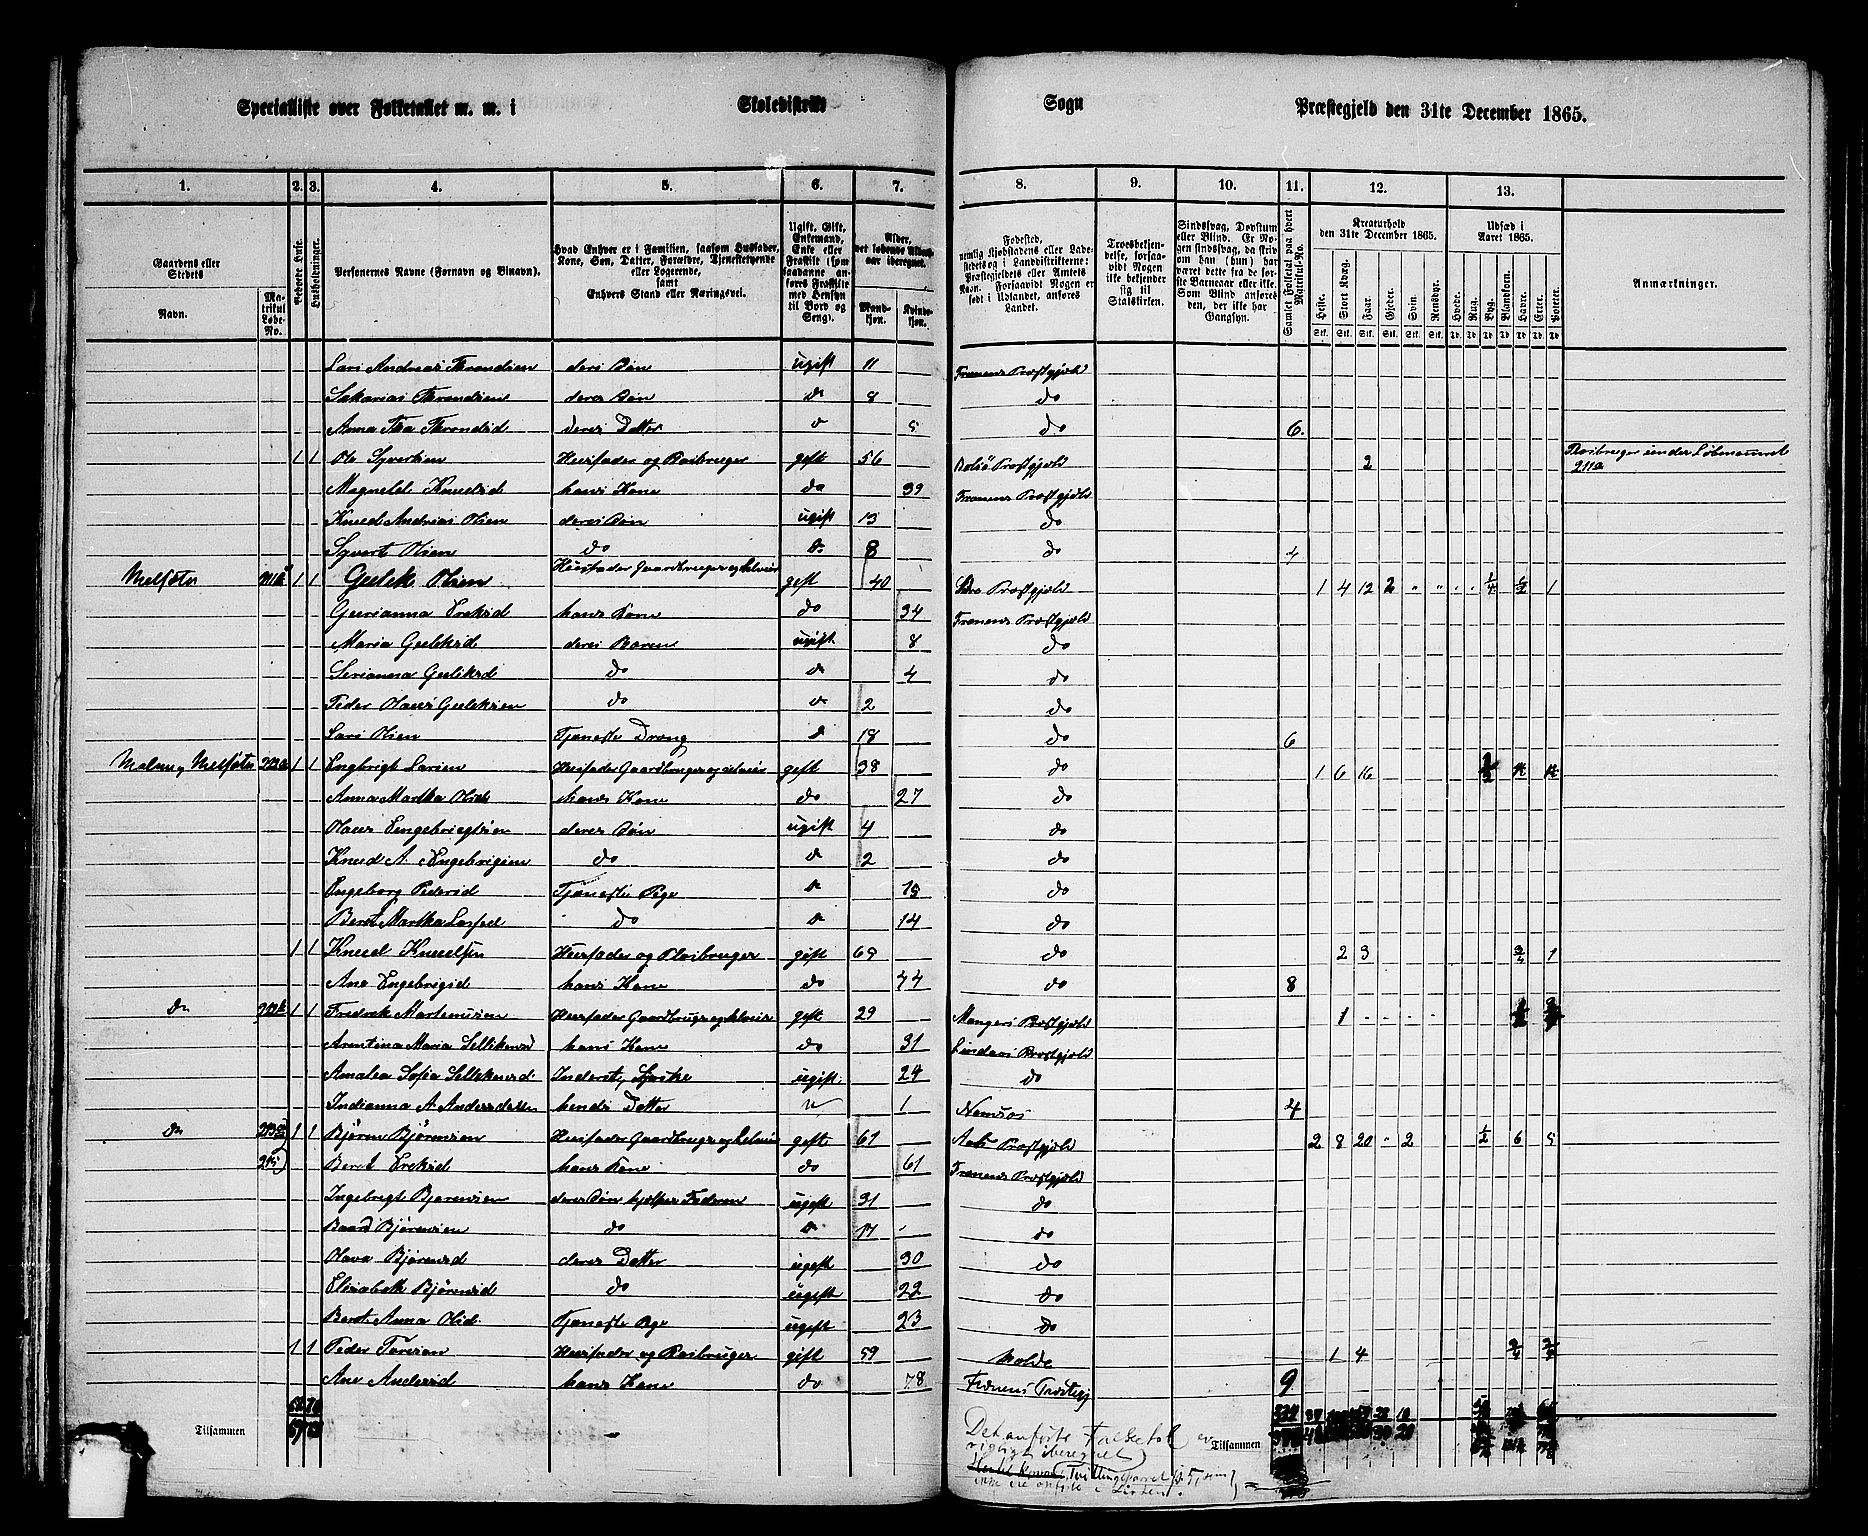 Specialliste over Folketallet m. m. i Skoledistrikt Sogn Præstegjeld den 31te December 1865.
1. 2. 3. 4. 5. 6. 7. 8. 9. 10. 11. 12. 13.
Gaardens eller Stedets
Navn.
Matrikul Løbe-No.
Bebvede Huse.
Husholdninger.
Personernes Navne (Fornavn og Binavn).
Hvad Enhver er i Familien, saasom Husfader, Kone, Søn, Datter, Forældre, Tjenestetyende eller Logerende, samt Enhvers Stand eller Næringsvei.
Ugift, Gift, Enkemand, Enke eller Fraskilt (som saadanne anføres Fraskilte med Hensyn til Bord og Seng).
Alder, det løbende Alders-aar iberegnet.
Mand-kjøn. Kvinde-kjøn.
Fødested, nemlig Kjøbstadens eller Ladestedets og i Landdistrikterne: Præstegjeldets eller Amtets Navn. Forsaavidt Nogen er født i Udlandet, anføres Landet.
Troesbekjendelse, forsaavidt Nogen ikke bekjender sig til Statskirken.
Sindssvag, Døvstum eller Blind. Er Nogen sindssvag, da skriv om han (hun) har været dette fra de første Barneaar eller ikke. Som Blind ansøres den, der ikke har Gangsyn.
Samlet Folketal paa hvert Matrikul-No.
Kreaturhold den 31te December 1865.
Heste. Stort Kvæg. Faar. Gjeder. Svin. Rensdyr.
Udsæd i Aaret 1865.
Hvede. Rug. Byg. Blandkorn. Havre. Erter. Poteter.
Anmærkninger.
Lars Andreas Throndsen deres Søn ugift 11 Frænens Præstgjæld
Sakarias Throndsen deres Søn do 8 do
Anna Throndsd deres Datter do 5 do 6.
1 1 Ole Syvertsen Huusfader og Pladsbruger gift 56 Bolsø Præstgjæld 2
Magnild Knudsd hans Kone do 39 Frænens Præstgjæld
Knud Andreas Olsen deres Søn ugift 13 do
Syvert Olsen do do 8 do 4
Melsæter 1 1 Gulek Olsen Huusfader Gaardbruger og Selveier gift 40 Præstgjæld 1 4 12 2 1/4 1
Gurianna Ereksd hans Kone do 34 Frænens Præstgjæld
Maria Guleksd deres Baren ugift 8 do
Serianna Guleksd do do 4 do
Peder Olaus Guleksen do do 2 do
Lars Olsen Tjæneste Dræng do 18 do 6
Malme, Melsæter 1 1 Engbrigt Larsen Huusfader Gaardbruger og Selveier gift 38 do 1 6 16
Anna Martha Olsd hans Kone do 27 do
Olaus Engebrigtsen deres Søn ugift 4 do
Knud A. Engebrigtsen do do 2 do
Engeborg Pedersd Tjæneste Pige do 15 do
Beret Martha Larsd do do 14 do
1 1 Knud Knudsen Huusfader og Pladsbruger gift 65 do 2 3 3/4 1
Ane Engebrigtsd hans Kone do 44 do 8
do 1 1 Fredrek Martenusen Huusfader Gaardbruger og Selveier gift 29 Mangers Præstgjæld 1
Arentina Maria Sellikensd hans Kone do 31 Lindaas Præstgjæld
Amalea Sofia Sellikensd Inderst, Syerske ugift 24 do
Indianna A. Andersdatter hendes Datter 1 Namsos 4
do 1 1 Bjørn Bjørnsen Huusfader Gaardbruger og Selveier gift 67 Præstgjæld 2 8 20 2 1/2 6 5
215 Beret Ereksd hans Kone do 61 Frænens Præstgjæld
Ingebregt Bjørnsen deres Søn hjelper Faderen ugift 31 do
Baard Bjørnsen do do 17 do
Olava Bjørnsd deres Datter ugift 30 do
Elisabeth Bjørnsd do ugift 22 do
Beret Anna Olsd Tjæneste Pige ugift 23 do
1 1 Peder Taresen Huusfader og Pladsbruger gift 59 Molde 1 4 3/4
Ane Andersd hans Kone do 78 Frænens Præstegj 9
Pladsbruger under Løbenumret 211a
Tilsammen Tilsammen
Det anførte Folketal er
rigtigt iberegnet
Tvillingparret
ikke ere anførte i Listen.